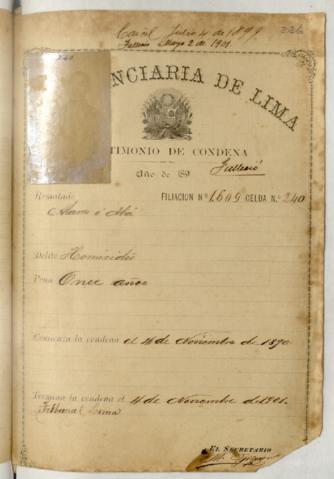 Carcel Julio 4 de 1899
326
Falleció Mayo 2 de 1901
240
NCIARIA DE LIMA
TIMONIO DE CONDENA
Falleció
Año de 89
Rematado
FILIACION N.º 1609 CELDA N.º 240
Asam ó Má
Delito Homicidio
Pena Once años
Comienza la condena el 4 de Noviembre de 1890
Termina la condena el 4 de Noviembre de 1901.
Tribunal Lima
EL SECRETARIO